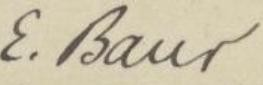 E. Baur